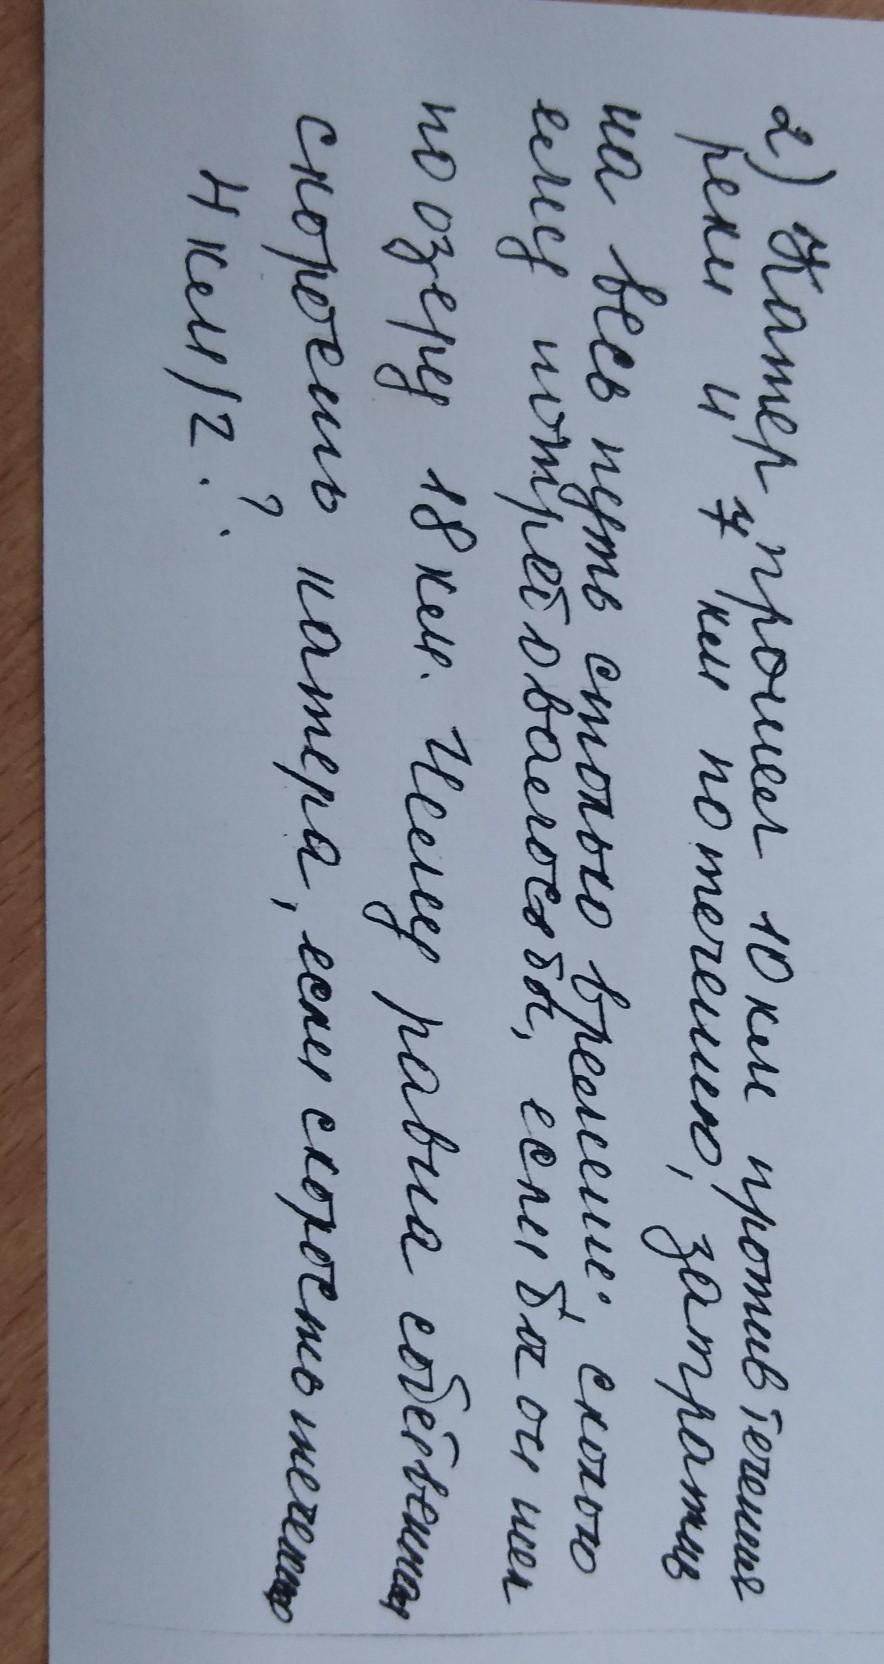 2) Катер прошел 10 км против течения
реки и 7 км по течению, затратив
на весь путь столько времени, сколько
ему потребовалось бы, если бы он шел
по озеру 18 км. Чему равна собственная
скорость катера, если скорость течению
4 км/ч.?